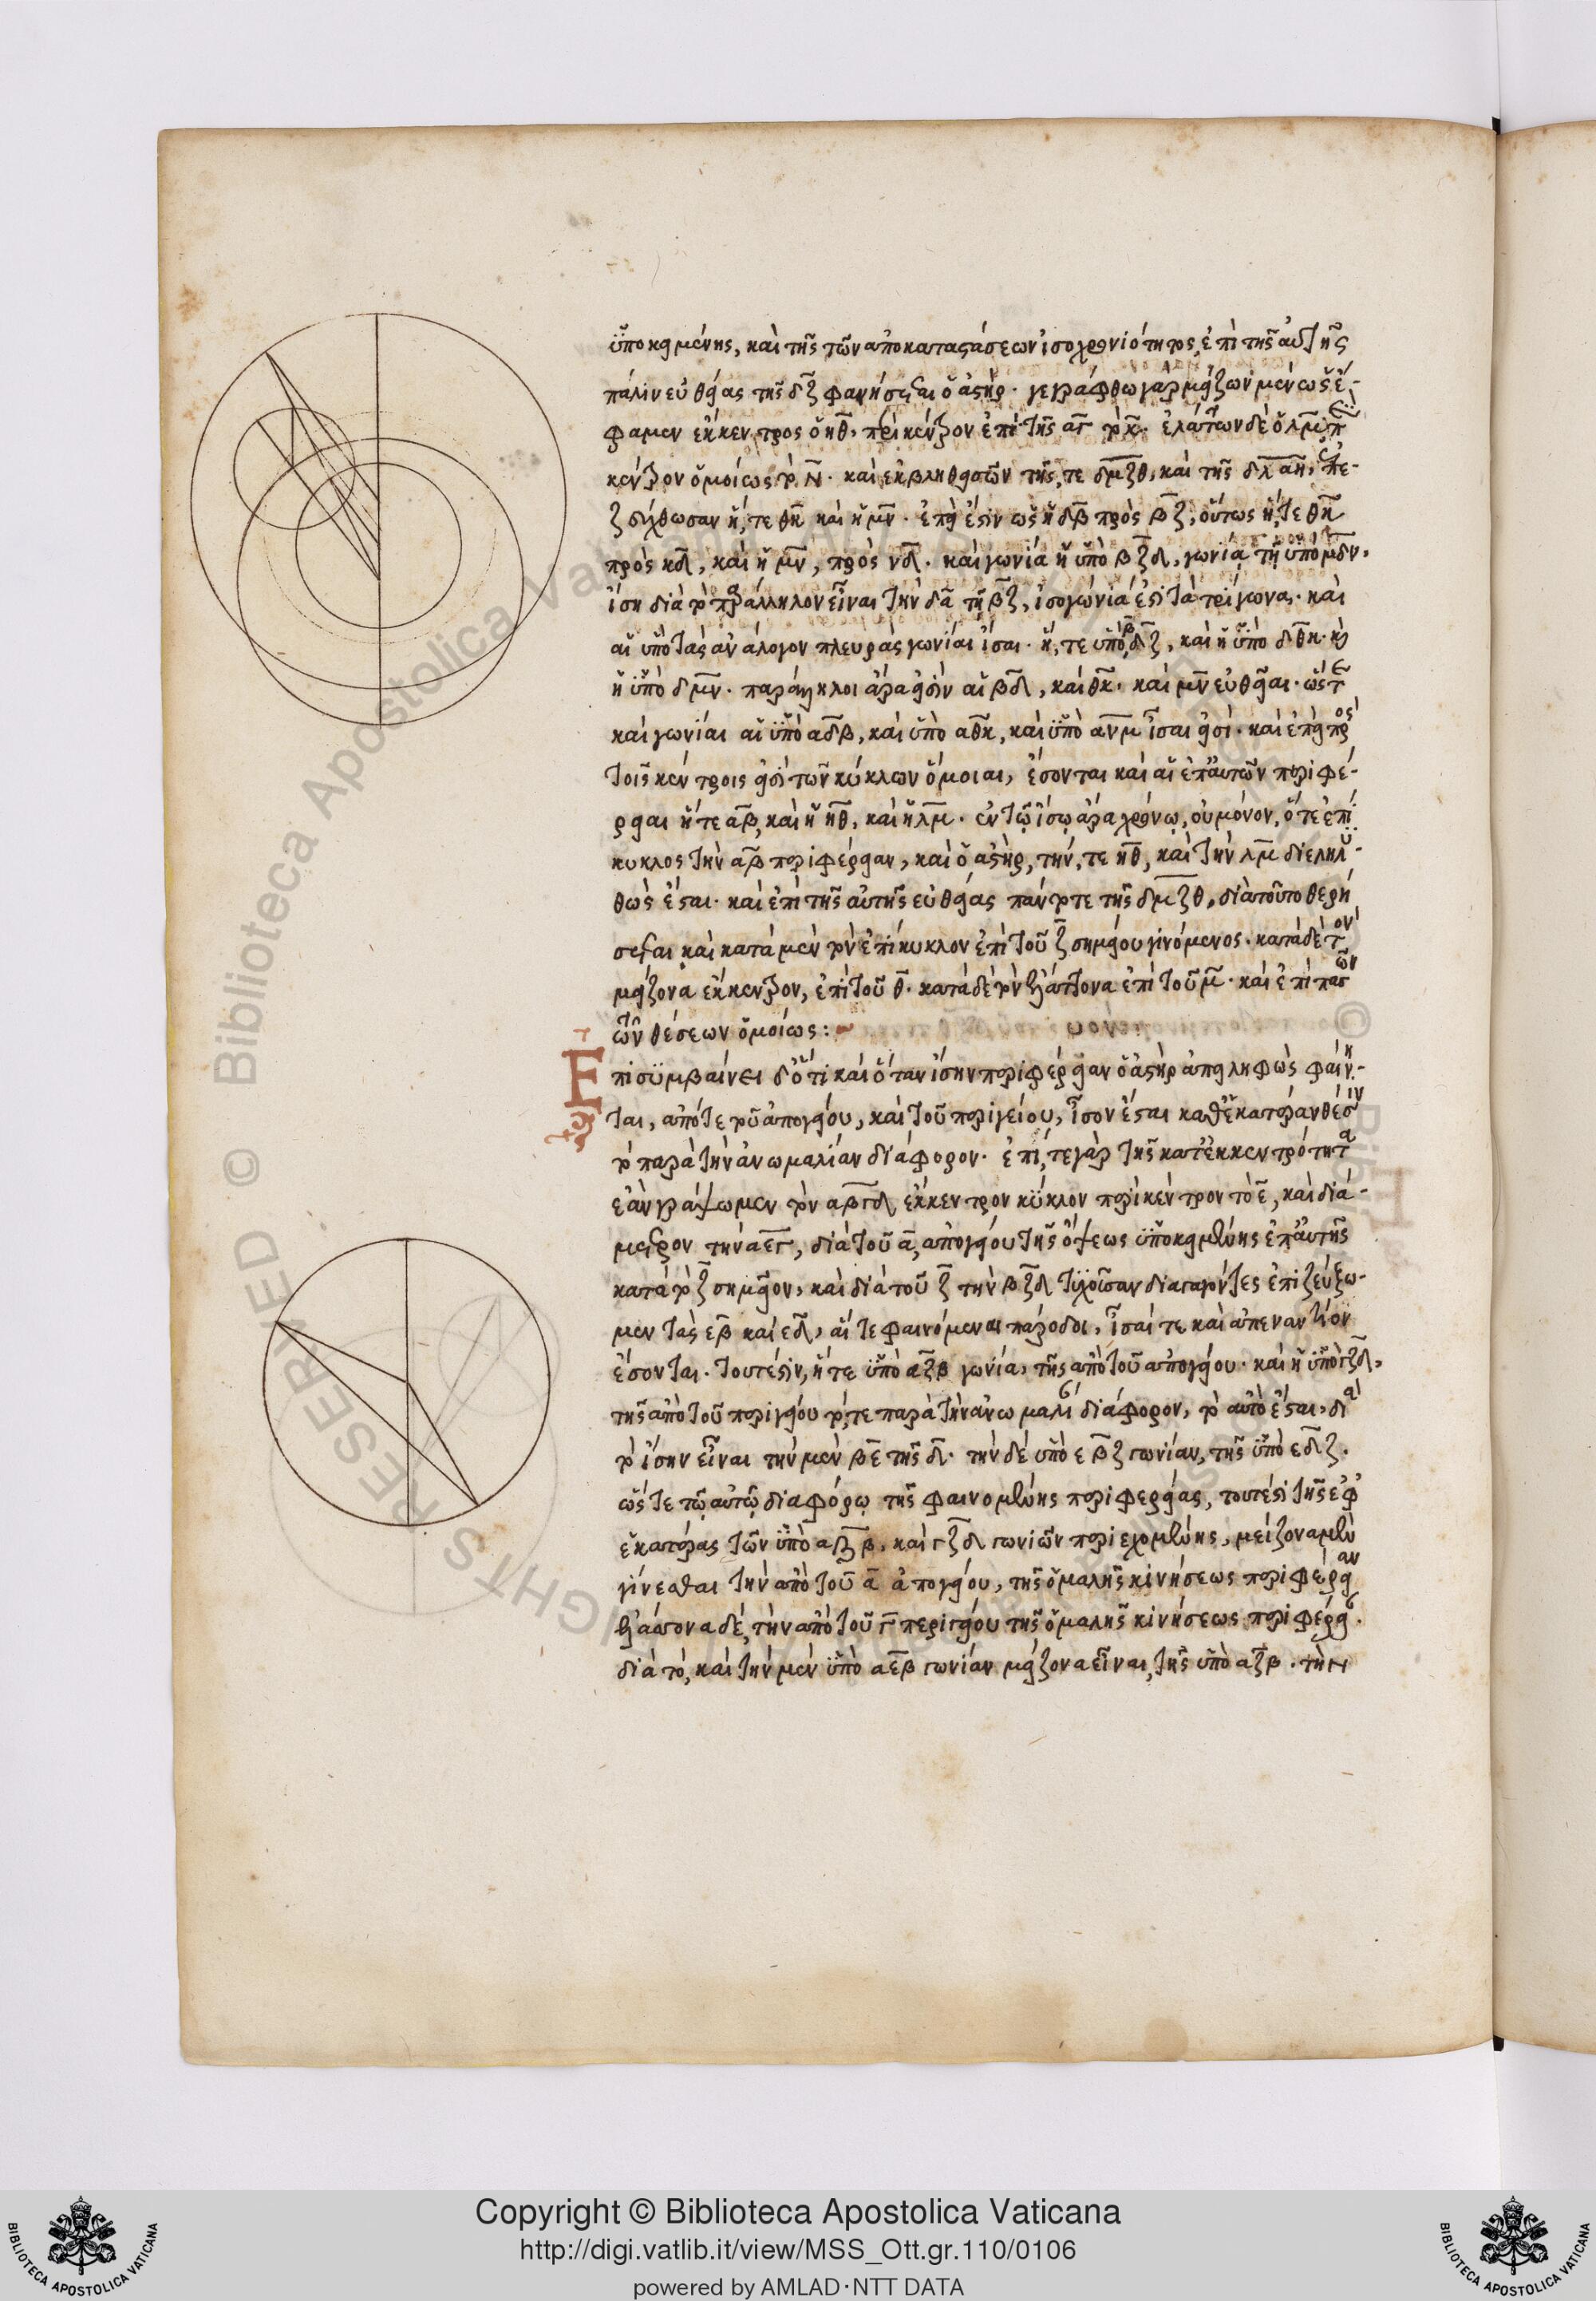 ὑποκειμένης, καὶ τῆς τῶν ἀποκαταστάσεων ἰσοχρονιότητος, ἐπὶ τῆς αὐτῆς
πάλιν εὐθείας τῆς δζ φανήσεται ὁ ἀστήρ. γεγράφθω γὰρ μείζων μὲν ὡς ἔ-
φαμεν ἔκκεντρος ὁ ηθ, περὶ κέντρον ἐπὶ τῆς αγ τὸ κ. ἐλάττων δὲ ὁ λμ περὶ
κέντρον ὁμοίως τὸ ν. καὶ ἐκβληθεισῶν τῆς τε δμζθ, καὶ τῆς δλαη, ἐπε-
ζεύχθωσαν ἥ τε θκ καὶ ἡ μν. ἐπεί ἐστιν ὡς ἡ δβ πρὸς βζ, οὕτως ἥ τε θκ
πρὸς κδ, καὶ ἡ μν, πρὸς νδ. καὶ γωνία ἡ ὑπὸ βζδ, γωνίᾳ τῇ ὑπὸ μδν,
ἴση διὰ τὸ παράλληλον εἶναι τὴν δα τῇ βζ, ἰσογώνιά ἐστι τὰ τρίγωνα. καὶ
αἱ ὑπὸ τὰς ἀνάλογον πλευρὰς γωνίαι ἴσαι. ἥ τε ὑπὸ βδζ, καὶ ἡ ὑπὸ δθκ. καὶ
ἡ ὑπὸ δμν. παράλληλοι ἄρα εἰσὶν αἱ βδ, καὶ θκ, καὶ μν εὐθεῖαι. ὥστε
καὶ γωνίαι αἱ ὑπὸ αδβ, καὶ ὑπὸ αθκ, καὶ ὑπὸ ανμ ἴσαι εἰσί. καὶ ἐπεὶ πρὸς
τοῖς κέντροις εἰσὶ τῶν κύκλων ὅμοιαι, ἔσονται καὶ αἱ ἐπ' αὐτῶν περιφέ-
ρειαι ἥ τε αβ, καὶ ἡ ηθ, καὶ ἡ λμ. ἐν τῷ ἴσῳ ἄρα χρόνῳ, οὐ μόνον, ὅ τε ἐπί-
κυκλος τὴν αβ περιφέρειαν, καὶ ὁ ἀστήρ, τήν, τε ηθ, καὶ τὴν λμ διεληλυ-
θὼς ἔσται. καὶ ἐπὶ τῆς αὐτῆς εὐθείας πάντοτε τῆς δμζθ, διὰ τοῦτο θεωρη
σεται καὶ κατὰ μὲν τὸν ἐπίκυκλον ἐπὶ τοῦ ζ σημείου γινόμενος. κατὰ δὲ τὸν
μείζονα ἔκκεντρον, ἐπὶ τοῦ θ. κατὰ δὲ τὸν ἐλάττονα ἐπὶ τοῦ μ. καὶ ἐπὶ πασῶν
τῶν θέσεων ὁμοίως:
Ἐπισυμβαίνει δ' ὅτι καὶ ὅταν ἴσην περιφέρειαν ὁ ἀστὴρ ἀπειληφὼς φαίνη-
ται, ἀπό τε τοῦ ἀπογείου, καὶ τοῦ περιγείου, ἴσον ἔσται καθ' ἑκατέραν θέσιν
τὸ παρὰ τὴν ἀνωμαλίαν διάφορον. ἐπί, τε γὰρ τῆς κατ' ἐκκεντρότητα
ἐὰν γράψωμεν τὸν αβγδ ἔκκεντρον κύκλον περὶ κέντρον τὸ ε, καὶ διά-
μετρον τὴν αεγ, διὰ τοῦ α, ἀπογείου τῆς ὄψεως ὑποκειμένης ἐπ' αὐτῆς
κατὰ τὸ ζ σημεῖον, καὶ διὰ τοῦ ζ τὴν βζδ τυχοῦσαν διαγαγόντες ἐπιζεύξω-
μεν τὰς εβ καὶ εδ, αἵ τε φαινόμεναι πάροδοι, ἴσαί τε καὶ ἀπεναντίον
ἔσονται. τουτέστιν, ἥ τε ὑπὸ αζβ γωνία, τῆς ἀπὸ τοῦ ἀπογείου. καὶ ἡ ὑπὸ γζδ,
τῆς ἀπὸ τοῦ περιγείου τό, τε παρὰ τὴν ἀνωμαλί διάφορον, τὸ αὐτὸ ἔσται, διὰ
τὸ ἴσην εἶναι τὴν μὲν βε τῆς δ. τὴν δὲ ὑπὸ εβζ γωνίαν, τῆς ὑπὸ εδζ.
ὥστε τῷ αὐτῷ διαφόρῳ τῆς φαινομένης περιφερείας, τουτέστι τῆς ἐφ'
ἑκατέρας τῶν ὑπὸ αζβ, καὶ γζδ γωνιῶν περιεχομένης, μείζονα μὲν
γίνεσθαι τὴν ἀπὸ τοῦ α ἀπογείου, τῆς ὁμαλῆς κινήσεως περιφέρειαν
ἐλάσσονα δέ, τὴν ἀπὸ τοῦ γ περιγείου τῆς ὁμαλῆς κινήσεως περιφερεί.
διὰ τό, καὶ τὴν μὲν ὑπὸ αεβ γωνίαν μείζονα εἶναι, τῆς ὑπὸ αζβ. τὴν
Copyright © Biblioteca Apostolica Vaticana
http://digi.vatlib.it/view/MSS_Ott.gr.110/0106
powered by AMLAD·NTT DATA
BIBLIOTECA APOSTOLICA VATICANA
BIBLIOTECA APOSTOLICA VATICANA